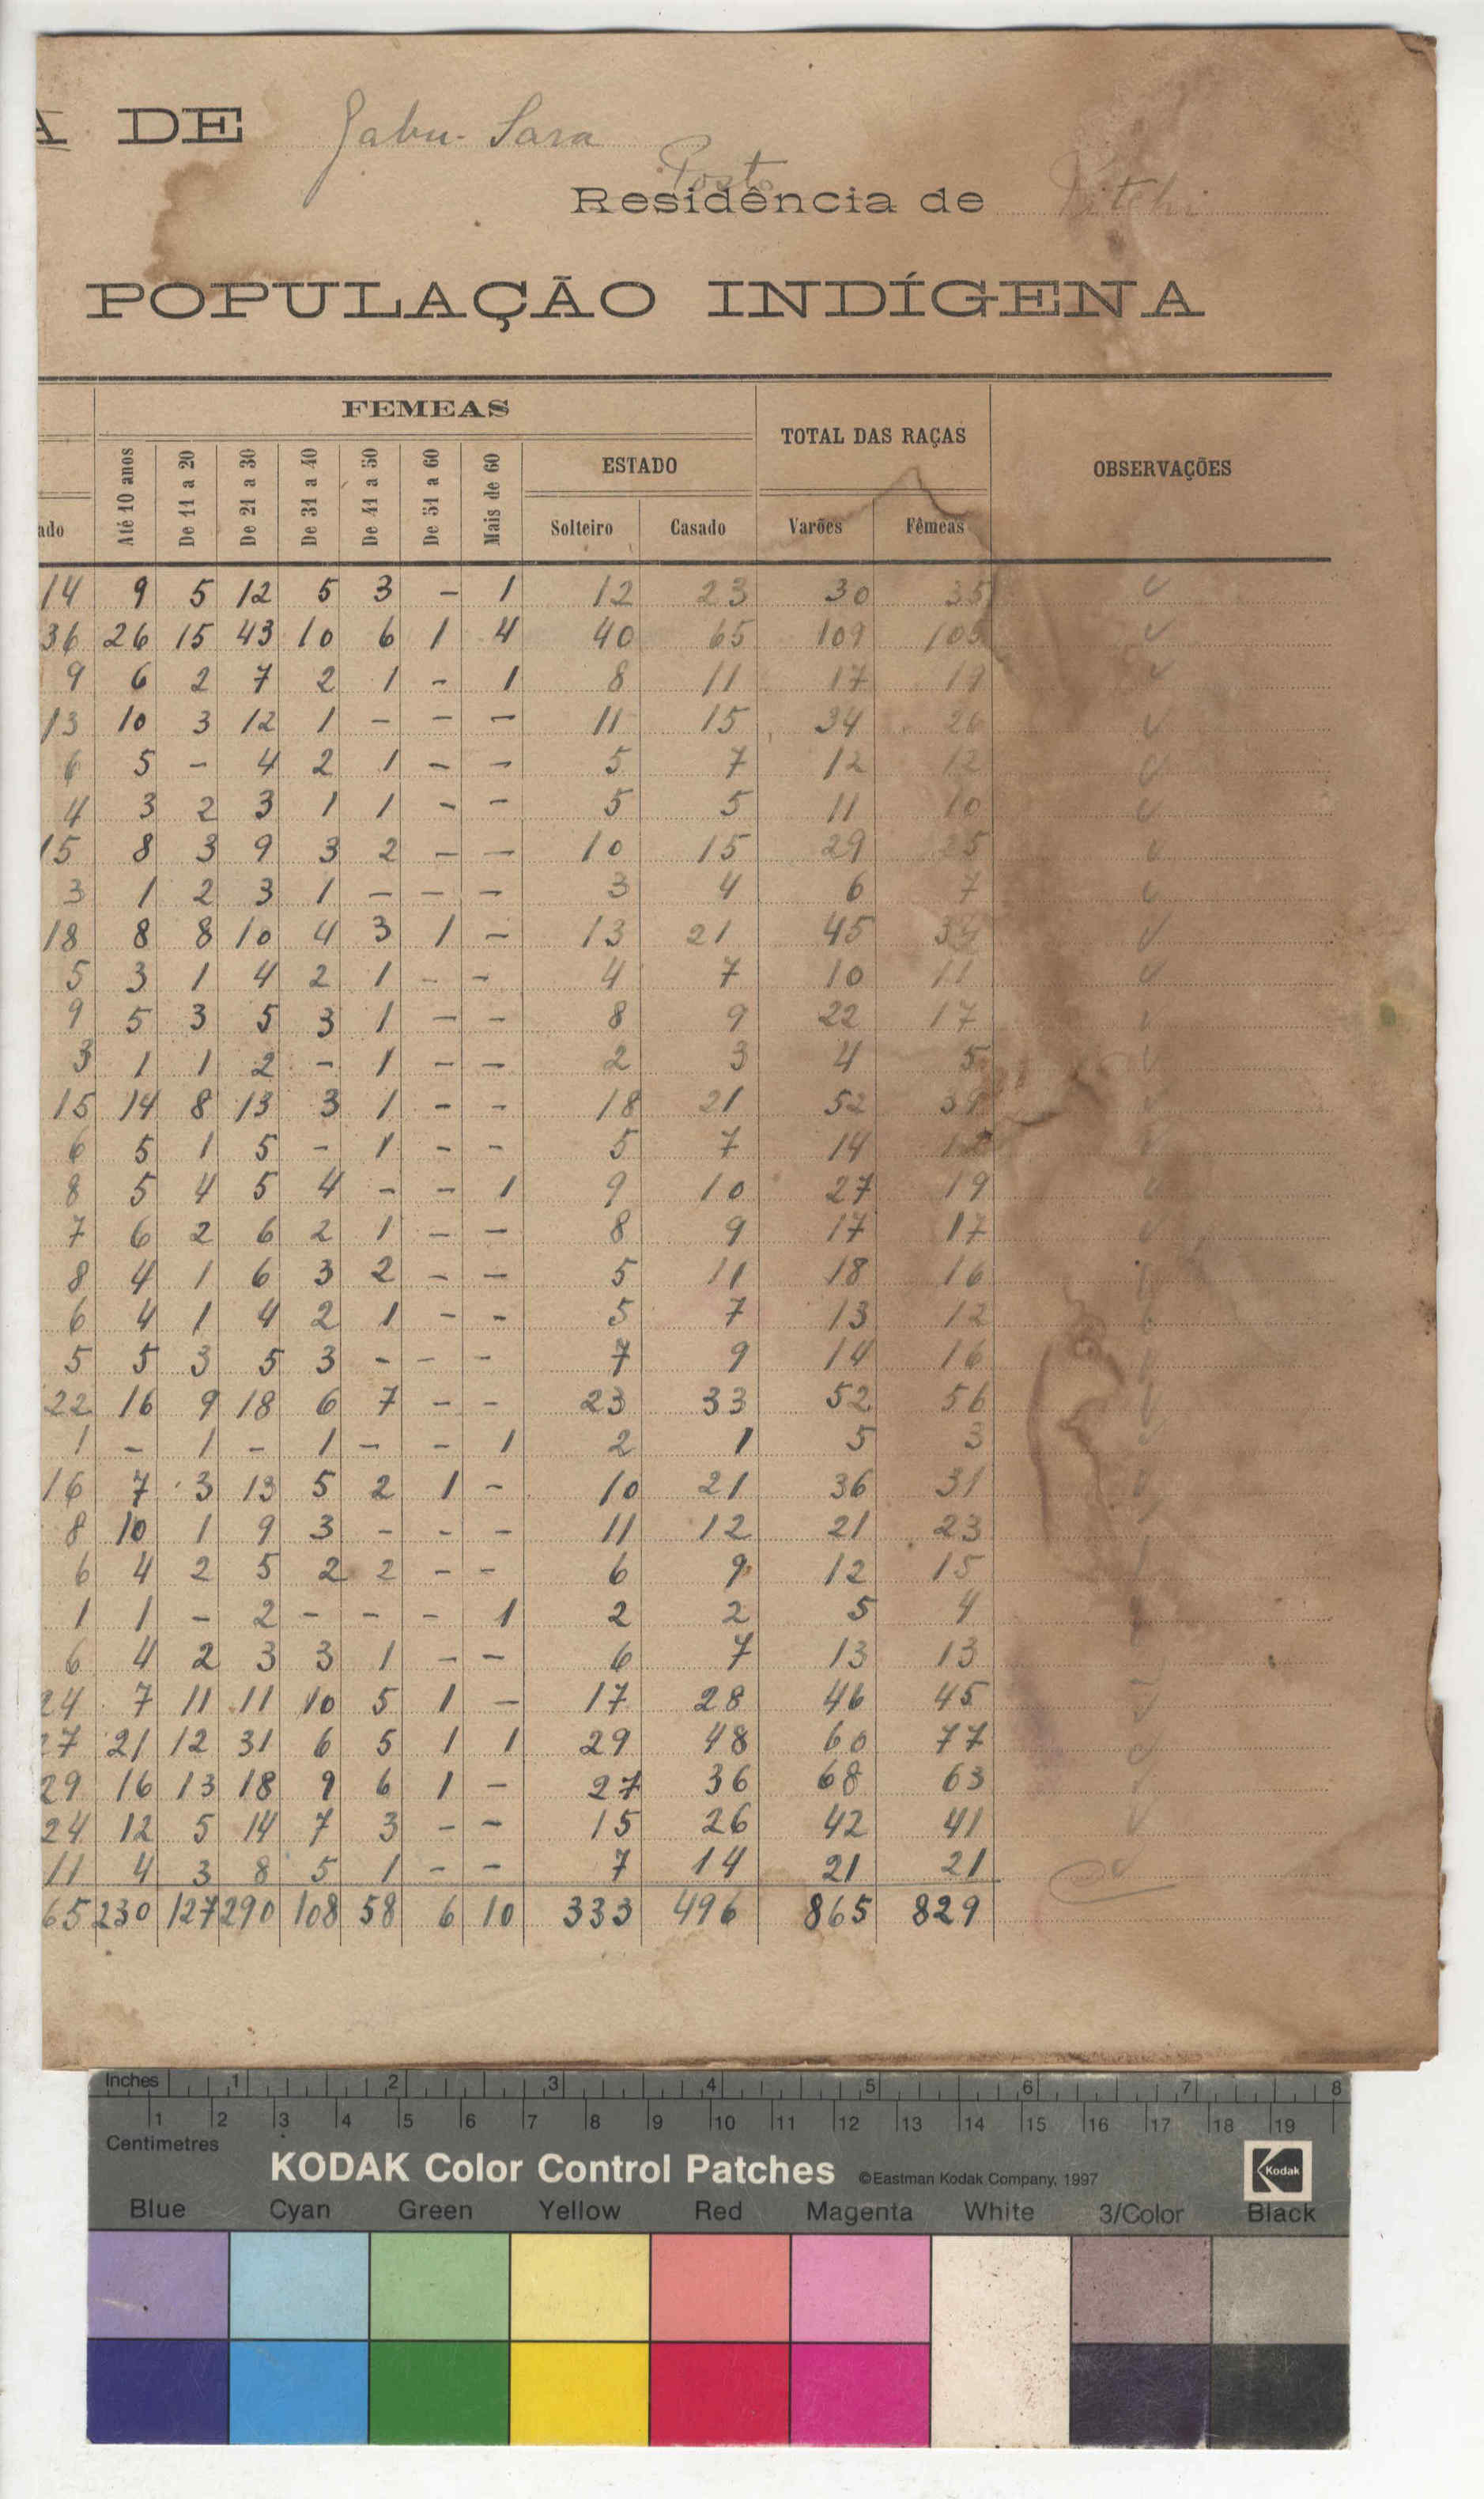 A DE Gabu-Sara
Posto
Residência de Pitche
POPULAÇÃO INDÍGENA
FEMEAS
TOTAL DAS RAÇAS
OBSERVAÇÕES
ado Até 10 anos De 11 a 20 De 21 a 30 De 31 a 40 De 41 a 50 De 51 a 60 Mais de 60 ESTADO
Solteiro Casado Varões Fêmeas
14 9 5 12 5 3 - 1 12 23 30 35
36 26 15 43 10 6 1 4 40 65 109 105
9 6 2 7 2 1 - 1 8 11 17 19
13 10 3 12 1 - - - 11 15 34 26
6 5 - 4 2 1 - - 5 7 12 12
4 3 2 3 1 1 - - 5 5 11 10
15 8 3 9 3 2 - - 10 15 29 25
3 1 2 3 1 - - - 3 4 6 7
18 8 8 10 4 3 1 - 13 21 45 34
5 3 1 4 2 1 - - 4 7 10 11
9 5 3 5 3 1 - - 8 9 22 17
3 1 1 2 - 1 - - 2 3 4 5
15 14 8 13 3 1 - - 18 21 52 39
6 5 1 5 - 1 - - 5 7 14 12
8 5 4 5 4 - - 1 9 10 27 19
7 6 2 6 2 1 - - 8 9 17 17
8 4 1 6 3 2 - - 5 11 18 16
6 4 1 4 2 1 - - 5 7 13 12
5 5 3 5 3 - - - 7 9 14 16
22 16 9 18 6 7 - - 23 33 52 56
1 - 1 - 1 - - 1 2 1 5 3
16 7 3 13 5 2 1 - 10 21 36 31
8 10 1 9 3 - - - 11 12 21 23
6 4 2 5 2 2 - - 6 9 12 15
1 1 - 2 - - - 1 2 2 5 4
6 4 2 3 3 1 - - 6 7 13 13
24 7 11 11 10 5 1 - 17 28 46 45
27 21 12 31 6 5 1 1 29 48 60 77
29 16 13 18 9 6 1 - 27 36 68 63
24 12 5 14 7 3 - - 15 26 42 41
11 4 3 8 5 1 - - 7 14 21 21
65 230 127 290 108 58 6 10 333 496 865 829
Inches 1 2 3 4 5 6 7 8
1 2 3 4 5 6 7 8 9 10 11 12 13 14 15 16 17 18 19
Centimetres
KODAK Color Control Patches ©Eastman Kodak Company, 1997 Kodak
Blue Cyan Green Yellow Red Magenta White 3/Color Black